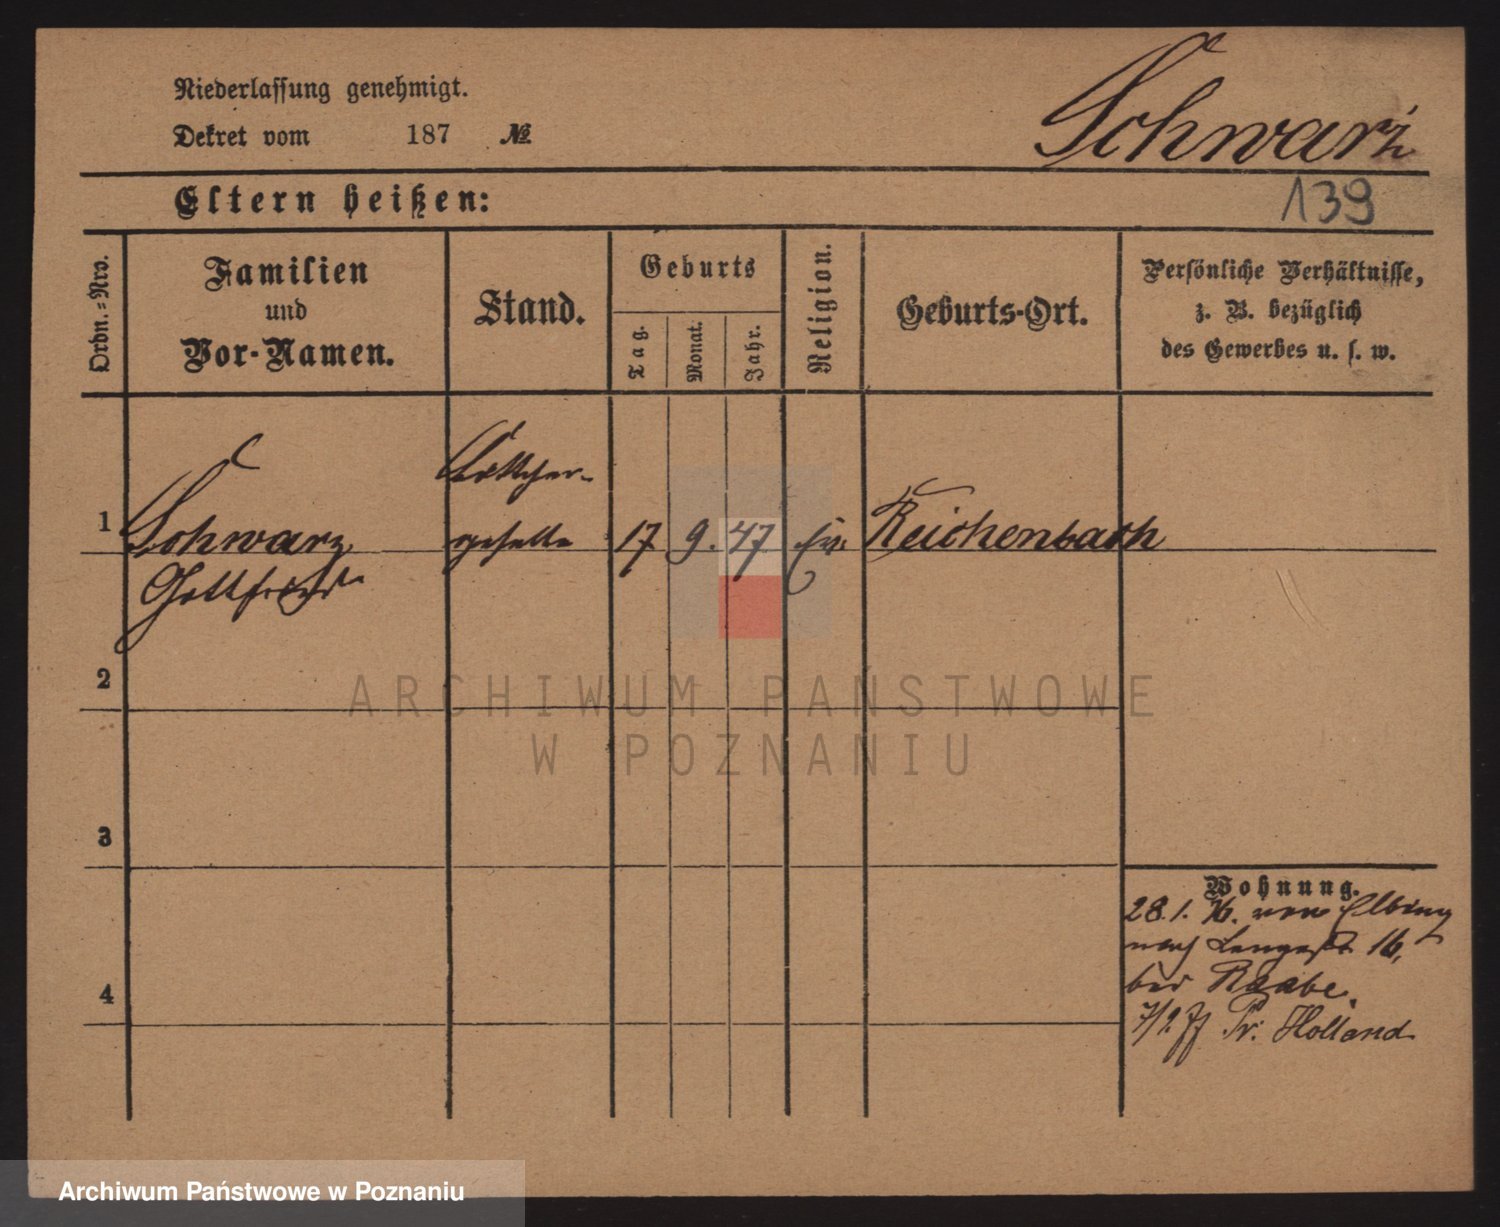 Niederlassung genehmigt.
Dekret vom 187 №
Schwarz
Eltern heißen:
139
Ordn.=Nro.
Familien
und
Vor-Namen.
Stand.
Geburts
Tag.
Monat.
Jahr.
Religion.
Geburts-Ort.
Persönliche Verhältnisse,
z. B. bezüglich
des Gewerbes u. s. w.
1
Schwarz
Gottfried
Böttcher-
geselle
17
9.
47
Ev.
Reichenbach
2
ARCHIWUM PAŃSTWOWE
W POZNANIU
3
Wohnung.
28.1. 76. von Elbing
nach Langestr. 16,
bei Raabe.
7/9. 77 Pr. Holland
4
Archiwum Państwowe w Poznaniu